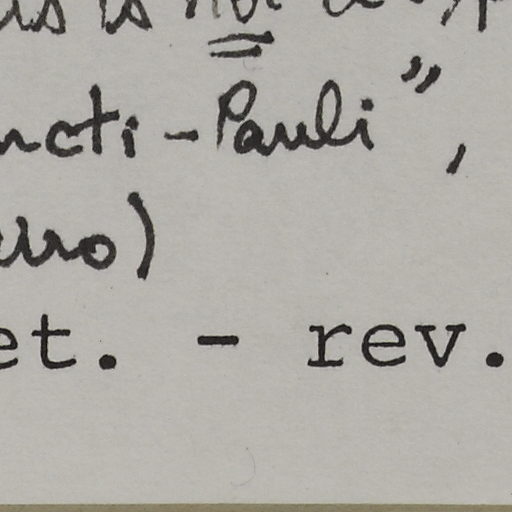 is not a
ncti-Pauli",
rro)
et. - rev.